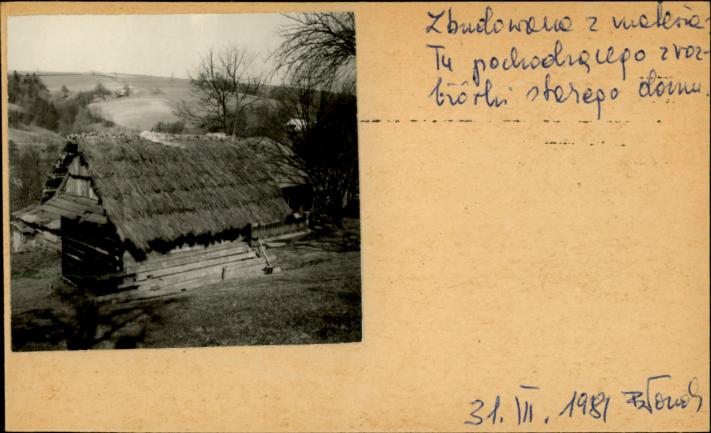 Zbudowana z materia-
łu pochodzącego z roz-
biórki starego domu.
31. III. 1981